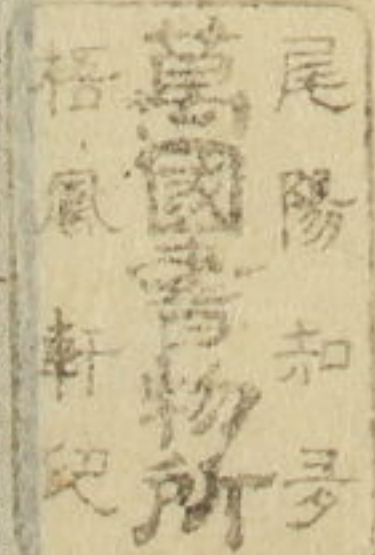 尾陽知多
萬國書物所
梧鳳軒